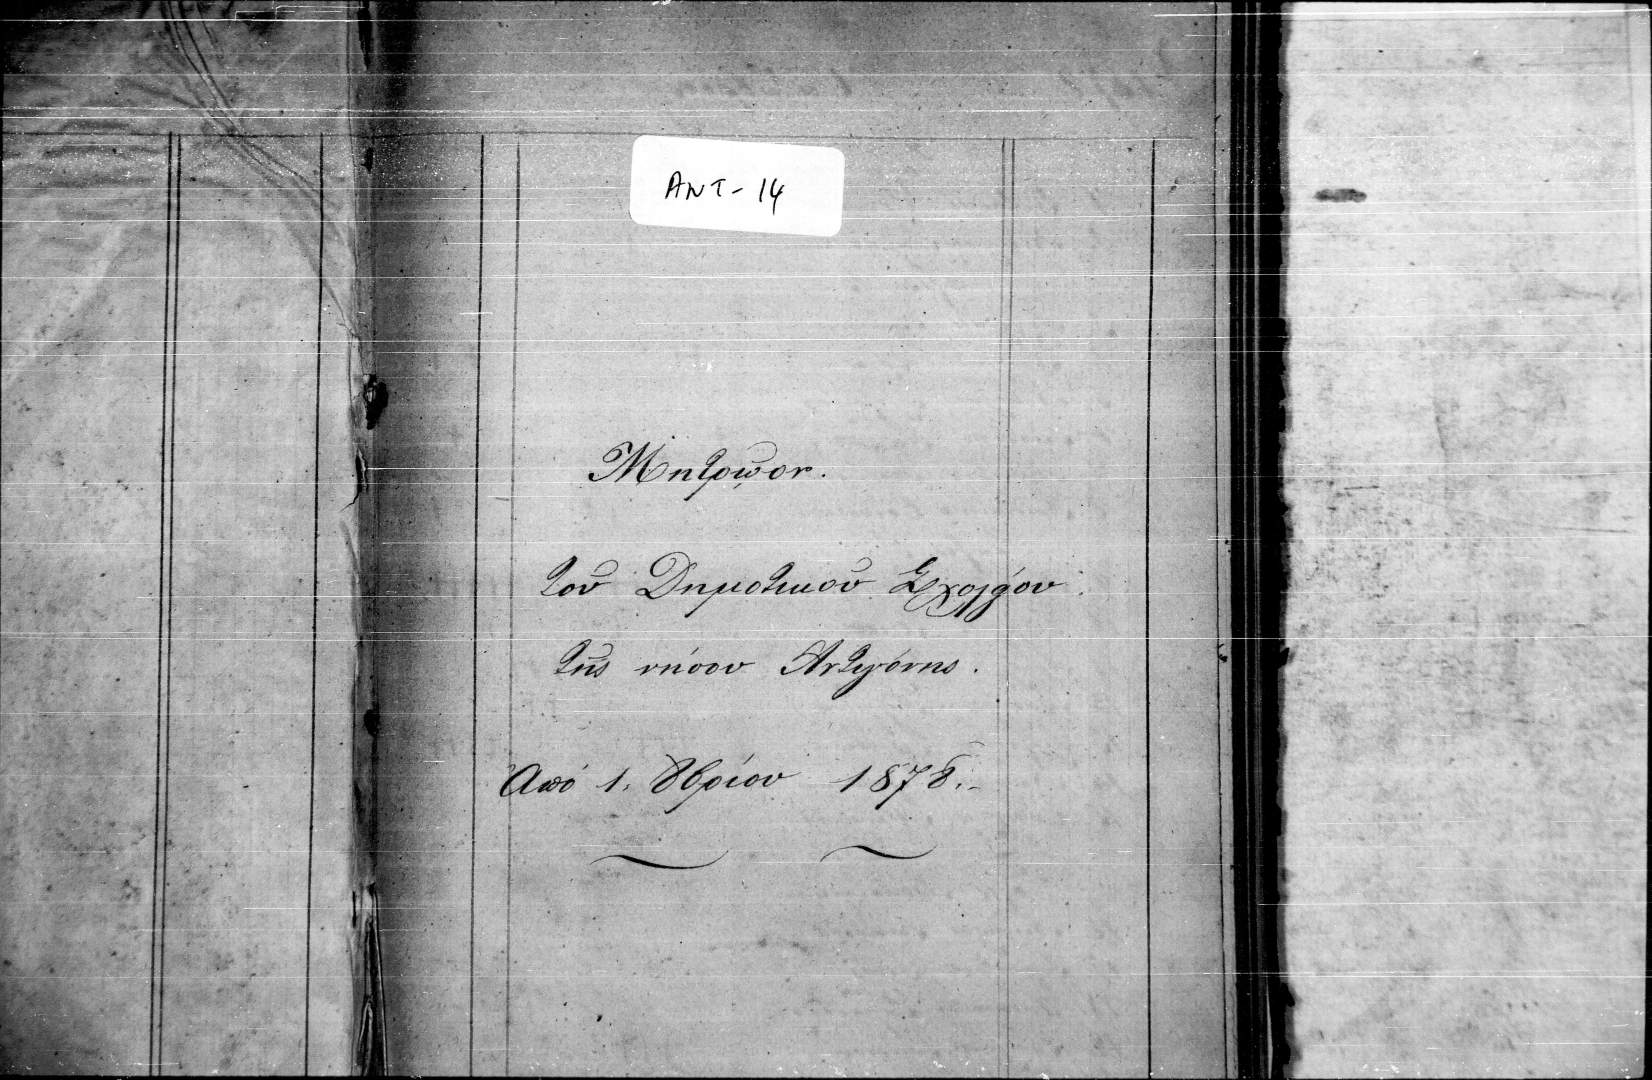 ANT-14
Μητρῷον.
τοῦ Δημοτικοῦ Σχολείου
τῆς νήσου Ἀντιγόνης.
Ἀπὸ 1. 8βρίου 1878.-